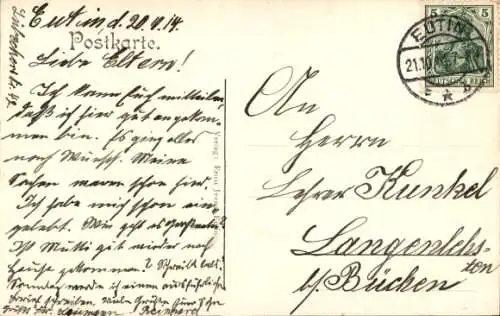 Eutin d. 20.4.14.
Postkarte.
Liebe Eltern!
Ich kann Euch mitteilen
daß ich hier gut angekom-
men bin. Es ging alles
nach Wunsch. Meine
Sachen waren schon hier.
Ich habe mich schon ein-
gelebt. Wie geht es
Ist Mutti gut wieder nach
Hause gekommen? Schreibt bald.
Sonntag werde ich einen ausführlichen
Brief schreiben. Viele Grüße Euer Sohn
Reinhard
Verlag: Ernst
5 5
EUTIN
21.10
DEUTSCHES REICH
An
Herrn
Lehrer Kunkel
Langenlehs-
ten
b/ Büchen